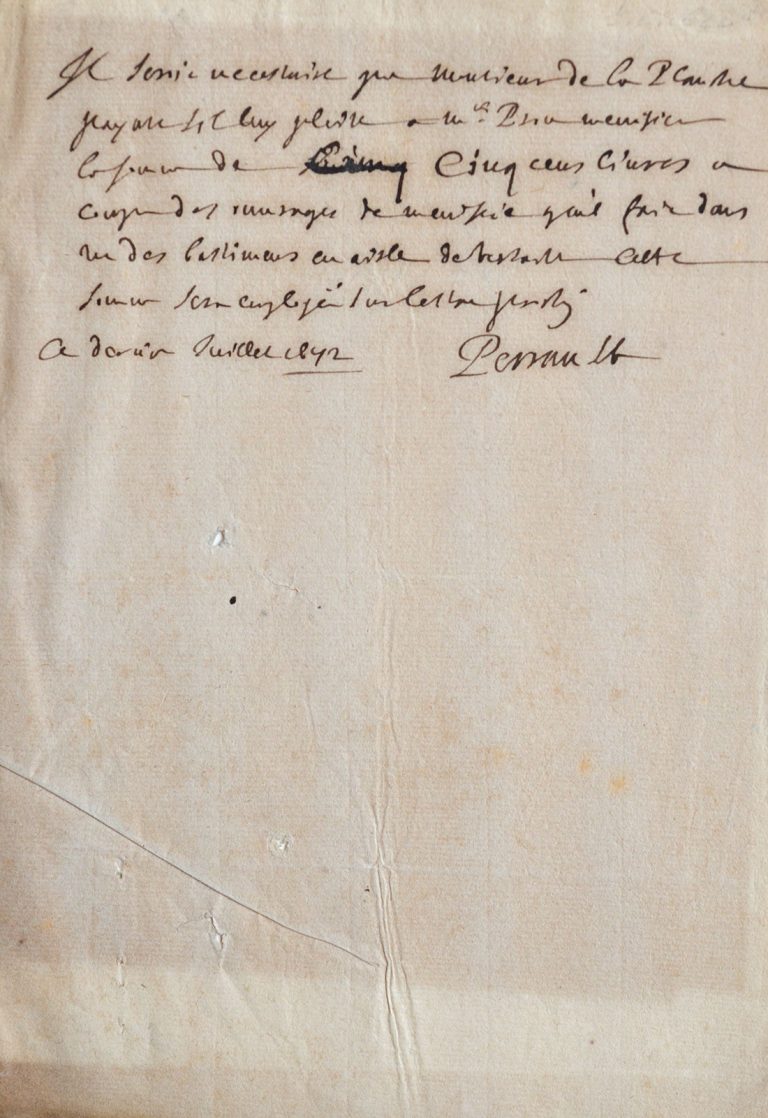 Il seroit necessaire que Monsieur de la Planche
payast s'il luy plaist a Mr. menuisier
la somme de Cinq cens livres a
compte des ouvrages de menuiserie qu'il fait dans
un des bastimens en aisle de Versailles Cette
somme sera employée sur l'estat
Ce dernier Juillet 1672 Perrault